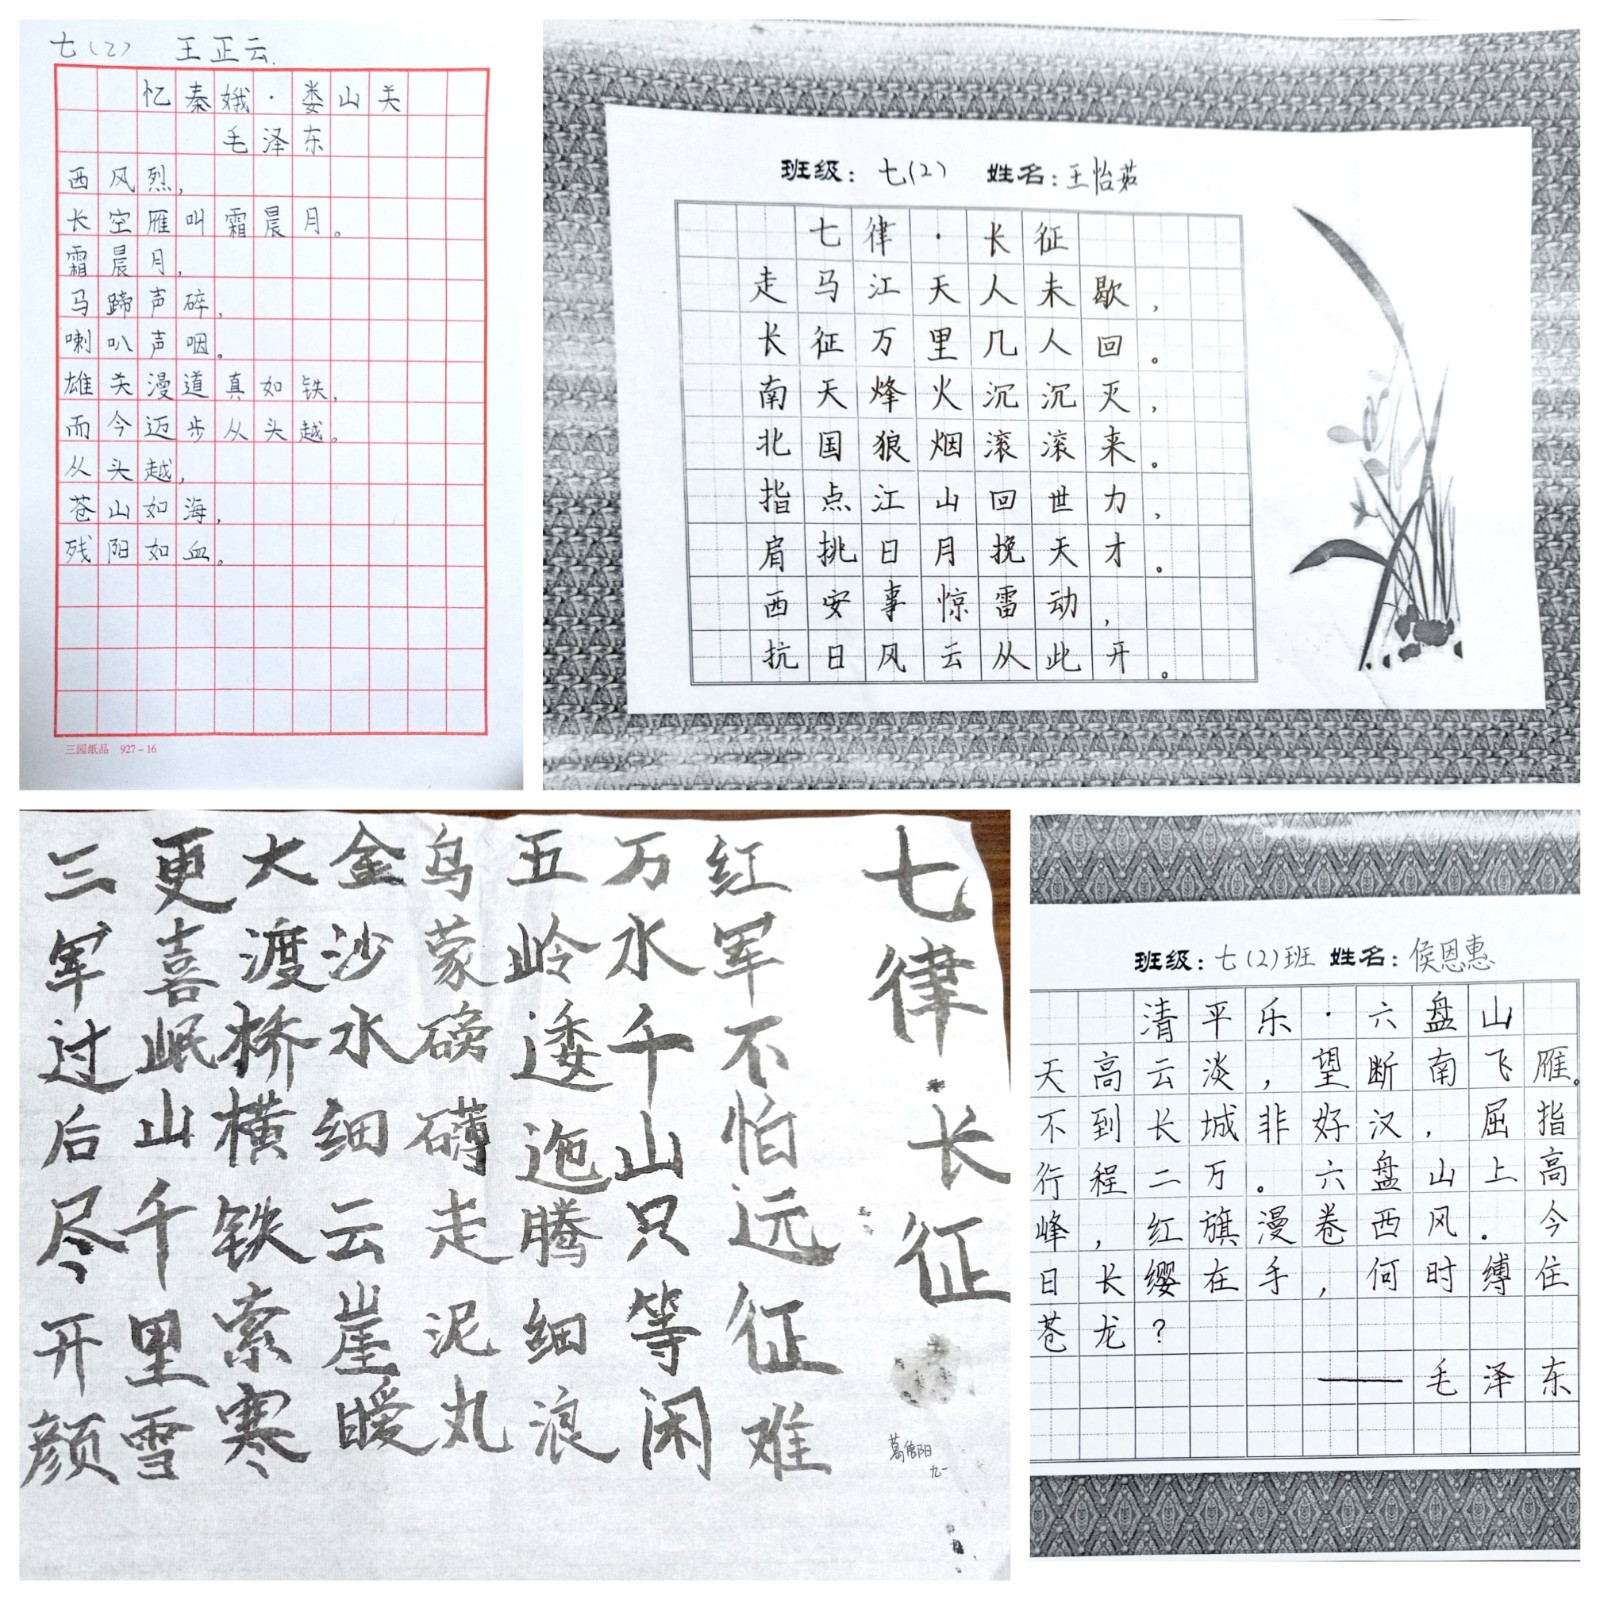 七(2) 王正云
忆秦娥·娄山关
毛泽东
西风烈,
长空雁叫霜晨月。
霜晨月,
马蹄声碎,
喇叭声咽。
雄关漫道真如铁,
而今迈步从头越。
从头越,
苍山如海,
残阳如血。
三园纸品 927-16
班级: 七(2) 姓名: 王怡茹
七律·长征
走马江天人未歇,
长征万里几人回。
南天烽火沉沉灭,
北国狼烟滚滚来。
指点江山回世力,
肩挑日月挽天才。
西安事惊雷动,
抗日风云从此开。
七律·长征
红军不怕远征难
万水千山只等闲
五岭逶迤腾细浪
乌蒙磅礴走泥丸
金沙水细云崖暖
大渡桥横铁索寒
更喜岷山千里雪
三军过后尽开颜
九一
班级: 七(2)班 姓名: 侯恩惠
清平乐·六盘山
天高云淡,望断南飞雁。
不到长城非好汉,屈指
行程二万。六盘山上高
峰,红旗漫卷西风.今
日长缨在手,何时缚住
苍龙?
——毛泽东